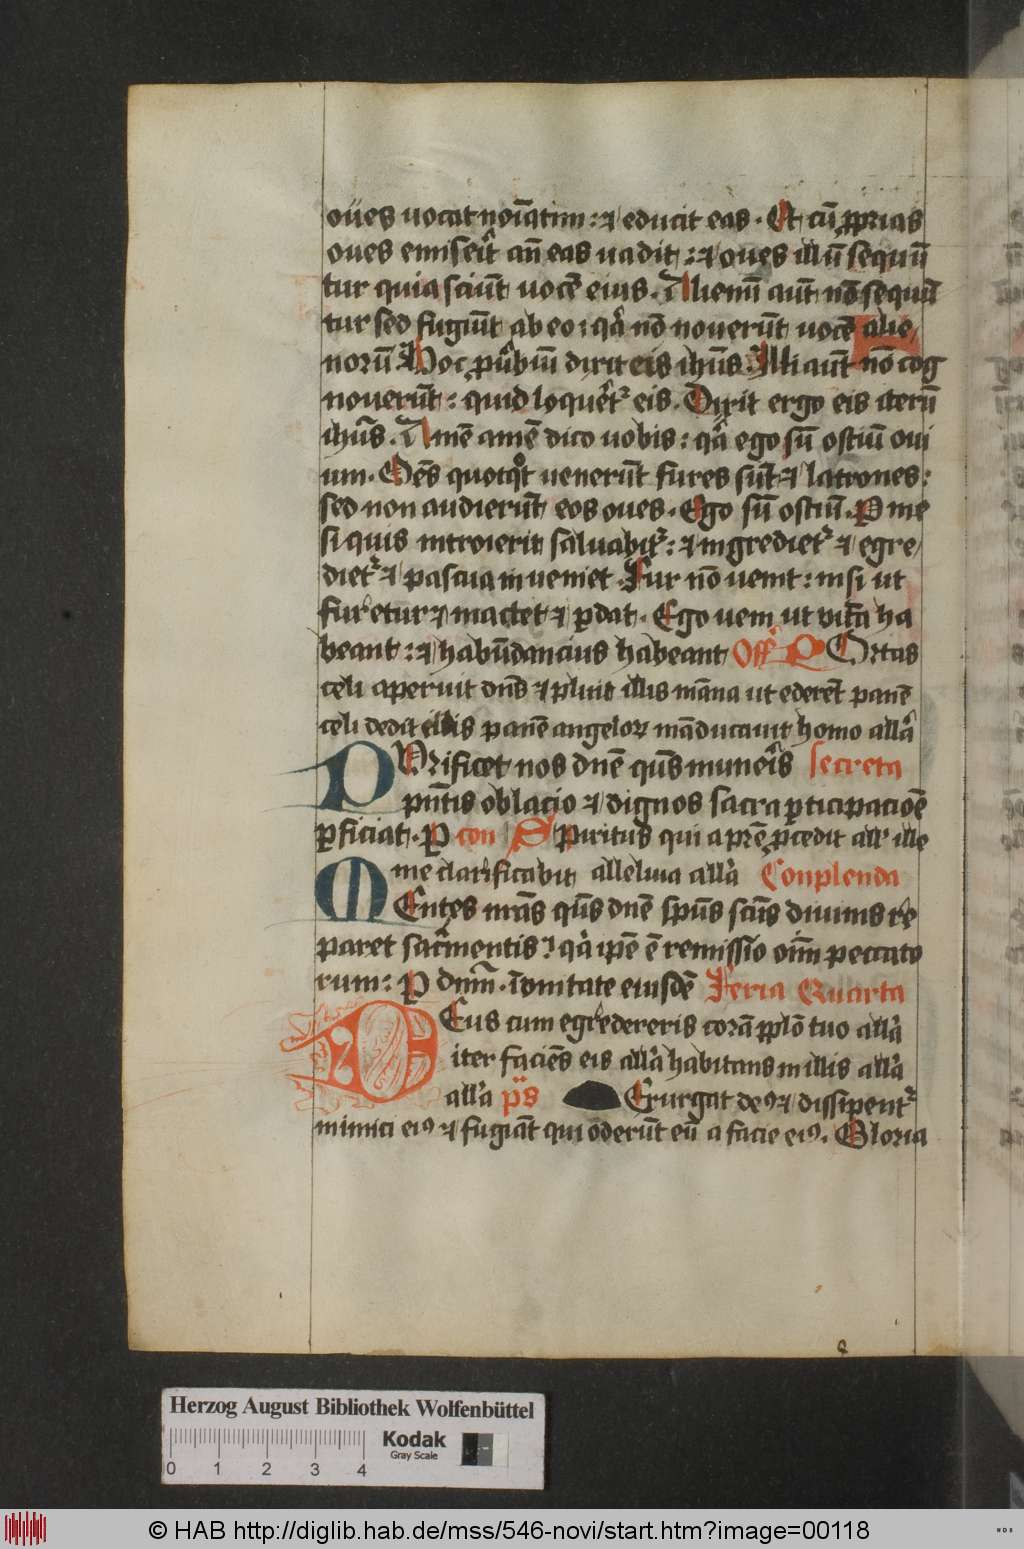 oues uocat noīatim : ⁊ educit eas . Et cū ꝓprias
oues emiserit̄ an̄ eas uadit : ⁊ oues illū sequū
tur quia sciūt uocē eius . Alienū aūt nō sequū
tur sed fugiūt ab eo : qa nō nouerūt uocē alie
norū Hoc ꝓuͥbiū dixit eis ihūs . Illi aūt nō cog
nouerūt : quid loqueretͬ eis . Dixit ergo eis iterū
ihūs . Amē amē dico uobis : qa ego sū ostiū oui
um . Oēs quotqͦt uenerūt fures sūt ⁊ latrones :
sed non audierūt eos oues . Ego sū ostiū . P me
si quis introierit saluabitͬ : ⁊ ingredietͬ ⁊ egre
dietͬ ⁊ pascua inueniet . Fur nō uenit : nisi ut
furetur ⁊ mactet ⁊ ꝑdat . Ego ueni ut uitā ha
beant : ⁊ habūdancius habeant Off̄ POrtas
celi aperuit dn̄s ⁊ pluit illis māna ut ederēt panē
celi dedit illis panē angeloꝝ māducauit homo all̄a
PUrificet nos dn̄e qs̄ munerͥs secreta
pn̄tis oblacio ⁊ dignos sacra ꝑticipacioē
ꝑficiat . Ꝑ con Spiritus qui a prē ꝓcedit all̄ ille
me clarificabit alleluia all̄a Conplenda
MEntes nr̄as qs̄ dn̄e sp̄us scūs diuinis re
paret sacͬmentis : qa ip̄e ē remissio oīm peccato
rum : Ꝑ dnm̄ . ī unitate eiusdē Feria Quarta
DEus cum egredereris corā ppl̄o tuo all̄a
iter faciēs eis all̄a habitans in illis all̄a
all̄a p̄s Exurgat deꝰ ⁊ dissipentͬ
inimici eiꝰ ⁊ fugiāt qui oderūt eū a facie eiꝰ . Gloria
Herzog August Bibliothek Wolfenbüttel
Kodak
Gray Scale
0 1 2 3 4
© HAB http://diglib.hab.de/mss/546-novi/start.htm?image=00118